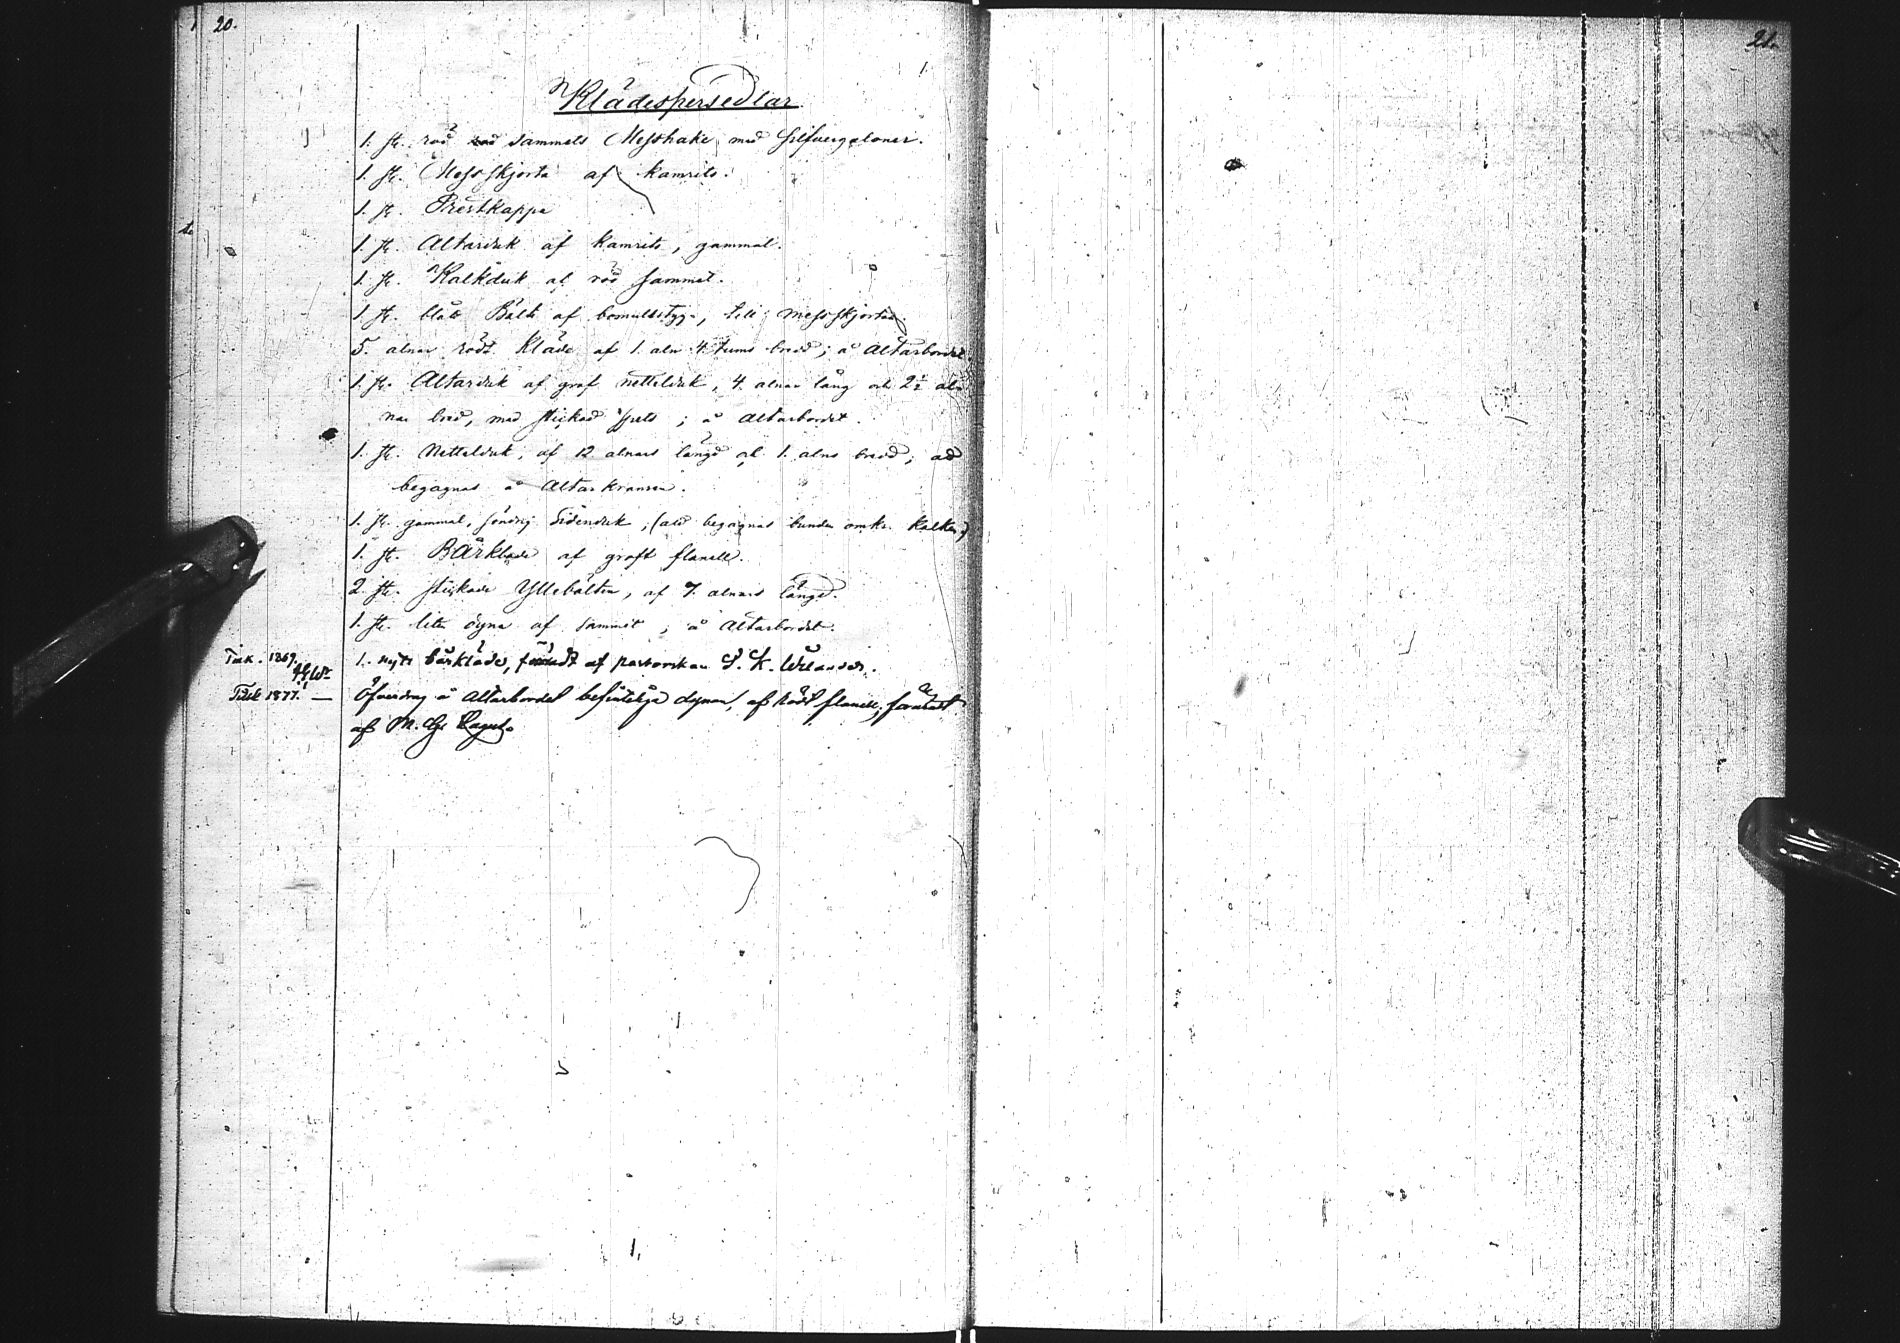 20.
21.
Klädespersedlar
1. st. röd sammets Messhake med silfvergaloner.
1. st. Messskjorta af kamrits.
1. st. Prestkappa
1. st. Altarduk af kamrits, gammal.
1. st. Kalkduk af röd sammet.
1. st. blått Bälte af bomullstyg, till messskjortan.
5. alnar rödt Kläde af 1. aln 4. tums bred; å Altarbordet.
1. st. Altarduk af grof nettelduk, 4. alnar lång och 2½ al-
nar bred, med stickad spets; å Altarbordet.
1. st. Nettelduk, af 12 alnars längd och 1. alns bredd; att
begagnas å Altarkransen.
1. st. gammal, söndrig Sidenduk, (att begagnas bunden omkr. Kalken)
1. st. Bårkläde af groft flanell.
2. st. stickade Yllebälten, af 7. alnars längd.
1. st. liten dyna af sammet, å Altarbordet.
Tillk. 1869. 1. nytt bårkläde, af pastorskan S. K. Welander.
Tillk. 1877. — Öfverdrag å Altarbordet befintliga dynan, af rödt flanell, föräradt
af M.